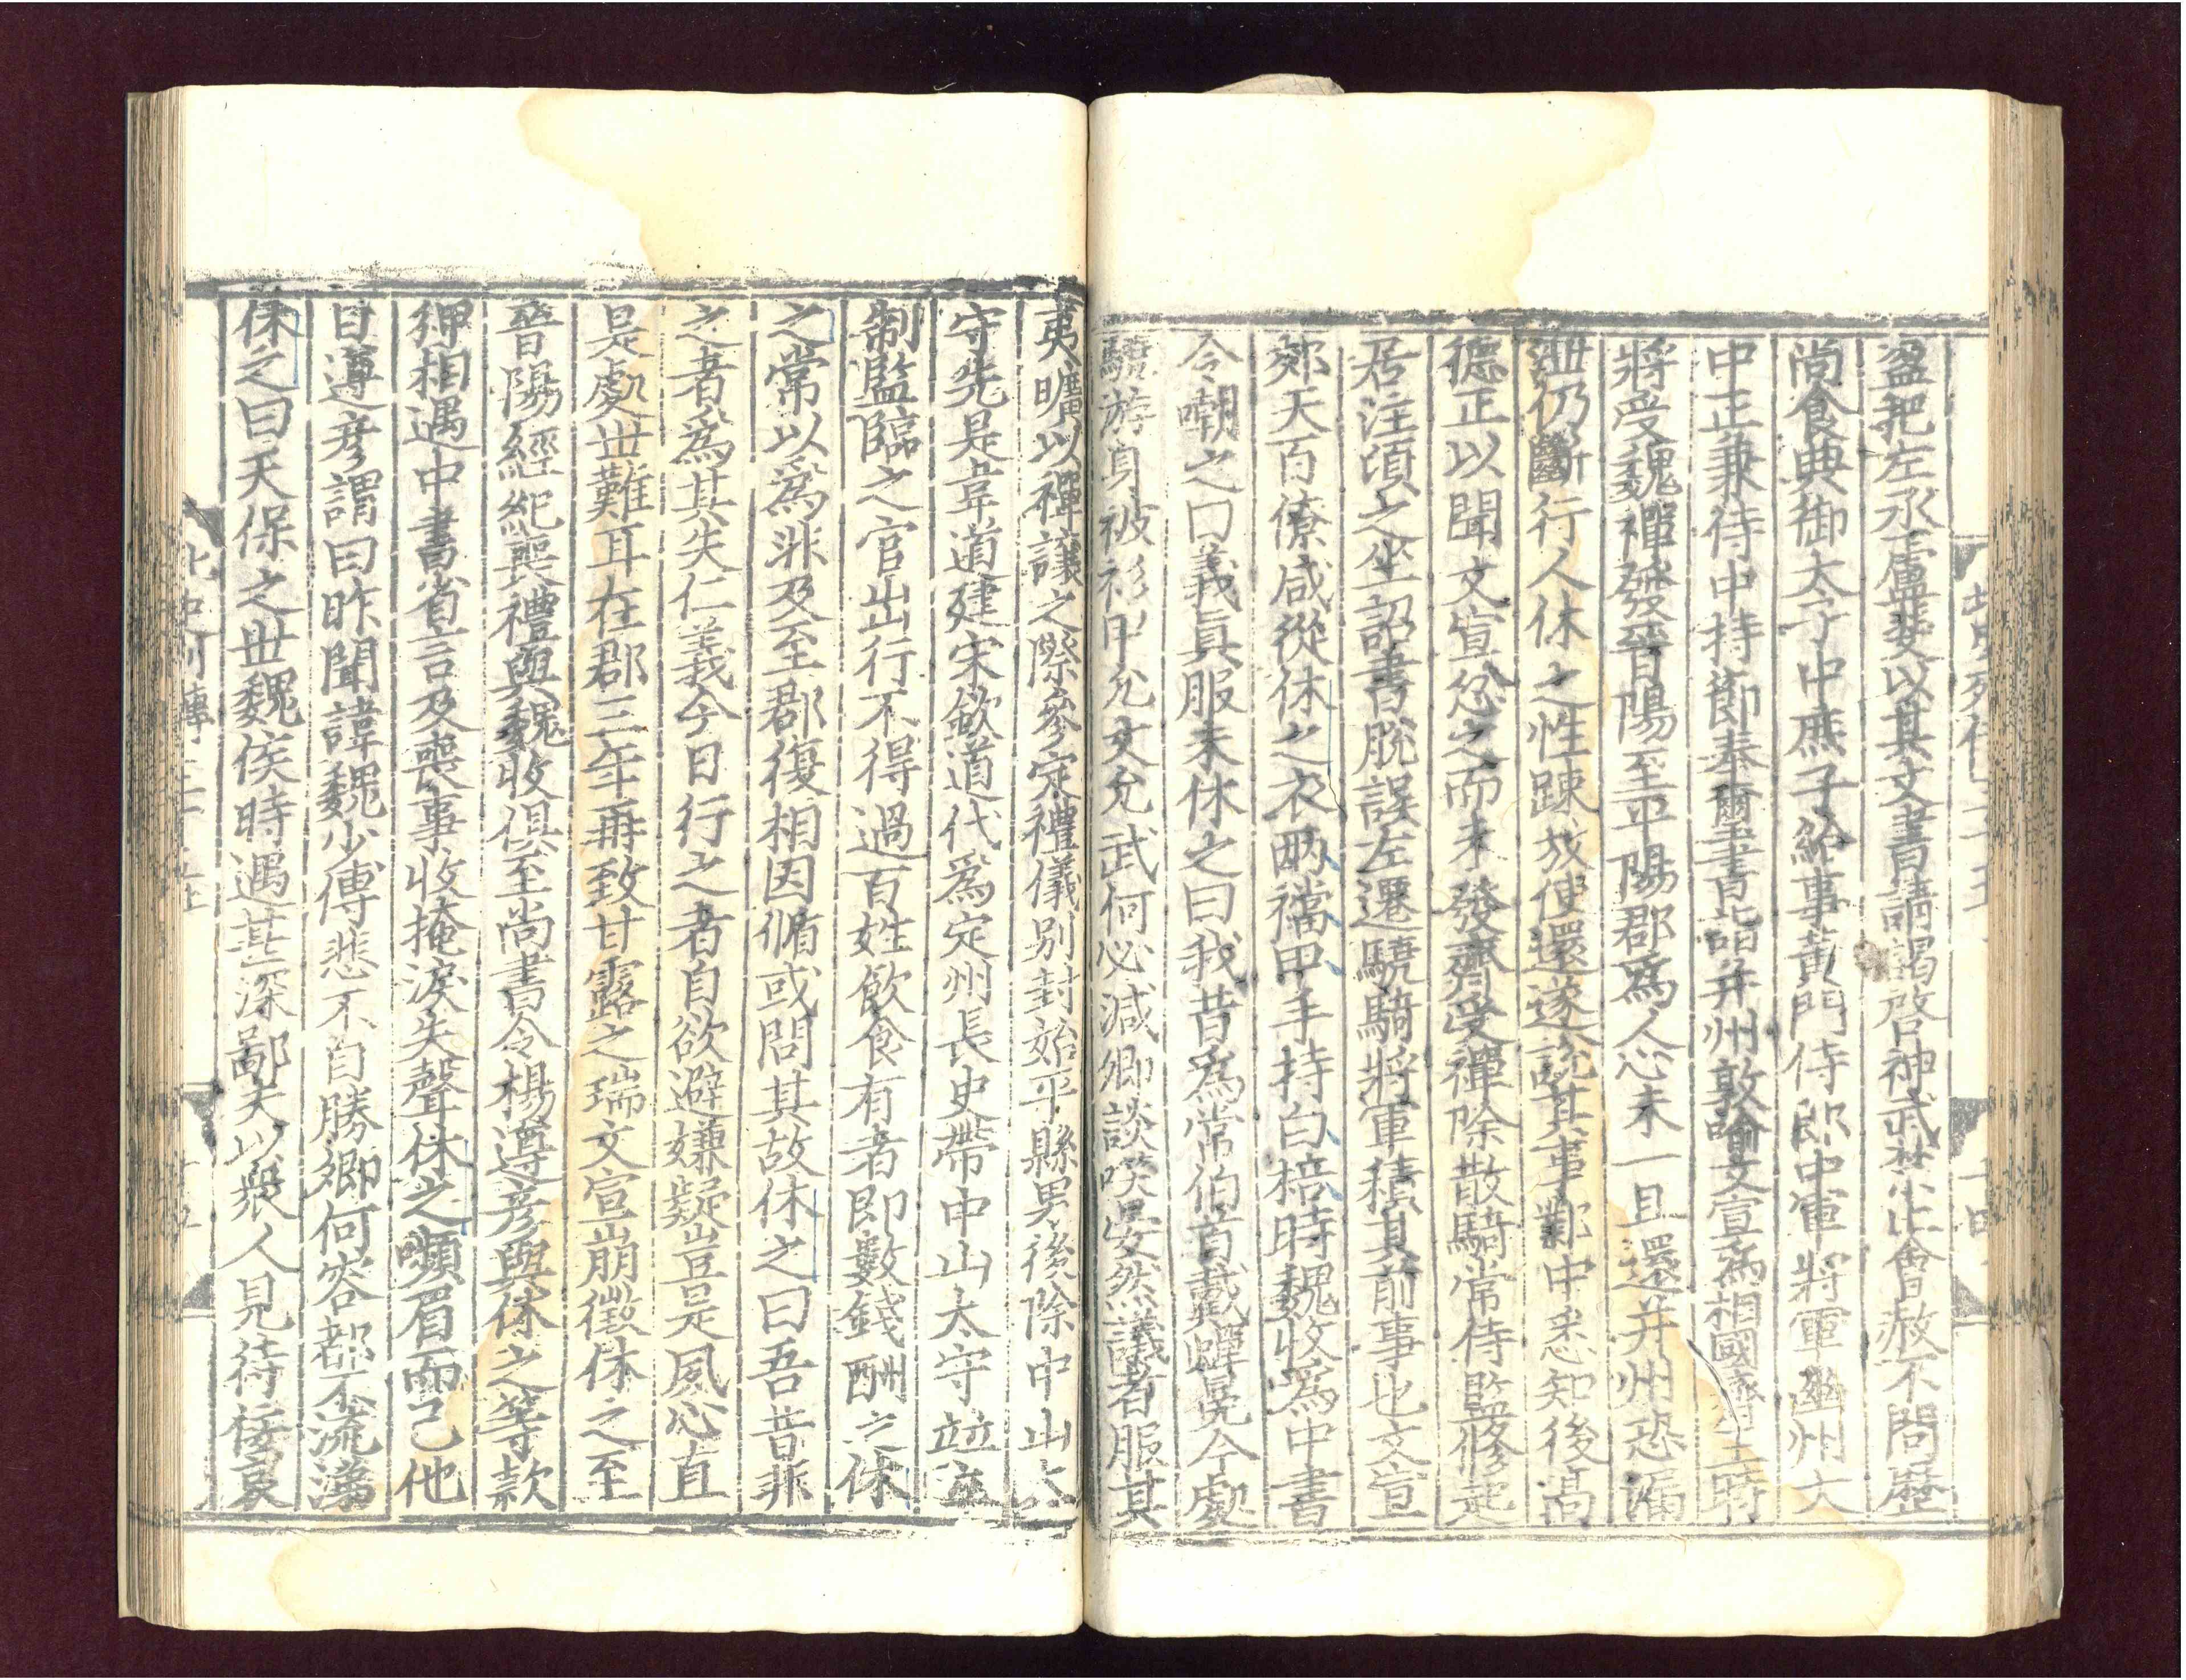 盜把左丞盧斐以其文書請謁啓神武禁止會赦不問歷
尚食典御太子中庶子給事黃門侍郎中軍將軍幽州大
中正兼侍中持節奉璽書詣并州敦喻文宣爲相國齊王時
將受魏禪發晉陽至平陽郡爲人心未一且還并州恐漏
泄仍斷行人休之性踈放使還遂說其事鄴中悉知後高
德正以聞文宣忿之而未發齊受禪除散騎常侍監修起
居注頃之坐詔書脫誤左遷驍騎將軍積其前事也文宣
郊天百僚咸從休之衣兩襠甲手持白棓時魏收爲中書
令嘲之曰義眞服未休之曰我昔爲常伯首戴蟬冕今處
驍游身被衫甲允文允武何必減卿談笑晏然議者服其
夷曠以禪讓之際參定禮儀別封始平縣男後除中山太
守先是韋道建宋欽道代爲定州長史帶中山太守竝立
制監臨之官出行不得過百姓飲食有者即數錢酬之休
之常以爲非及至郡復相因循或問其故休之曰吾昔非
之者爲其失仁義今日行之者自欲避嫌疑豈是夙心直
是處世難耳在郡三年再致甘露之瑞文宣崩徵休之至
晉陽經紀喪禮與魏收俱至尚書令楊遵彥與休之等款
狎相遇中書省言及喪事收掩淚失聲休之嚬眉而已他
日遵彥謂曰昨聞諱魏少傅悲不自勝卿何容都不流涕
休之曰天保之世魏侯時遇甚深鄙夫以衆人見待佞哀
北史列傳三十五